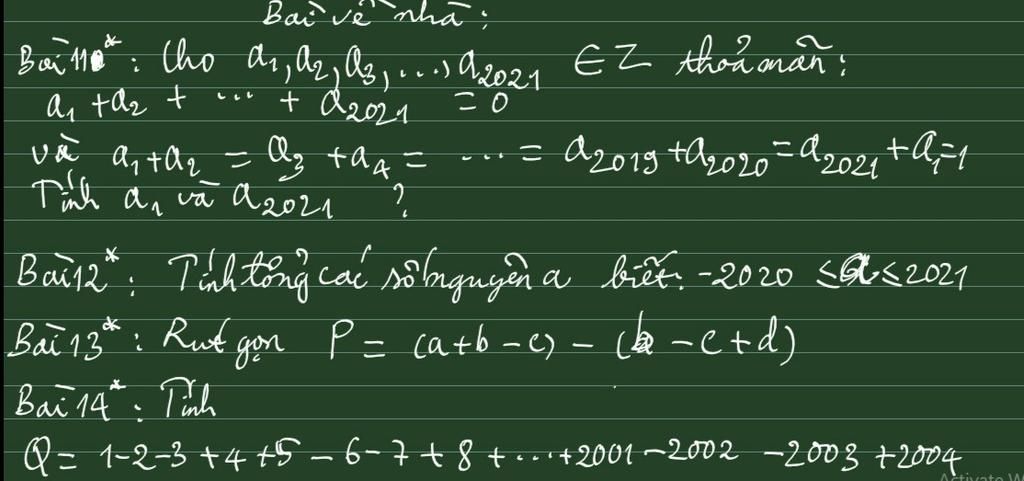 Bài về nhà:
Bài 11*: Cho a₁, a₂, a₃, ..., a₂₀₂₁ ∈ Z thoả mãn:
a₁ + a₂ + ... + a₂₀₂₁ = 0
và a₁ + a₂ = a₃ + a₄ = ... = a₂₀₁₉ + a₂₀₂₀ = a₂₀₂₁ + a₁ = 1
Tính a₁ và a₂₀₂₁ ?
Bài 12*: Tính tổng các số nguyên a biết: -2020 ≤ a ≤ 2021
Bài 13*: Rút gọn P = (a + b - c) - (b - c + d)
Bài 14*: Tính
Q = 1 - 2 - 3 + 4 + 5 - 6 - 7 + 8 + ... + 2001 - 2002 - 2003 + 2004